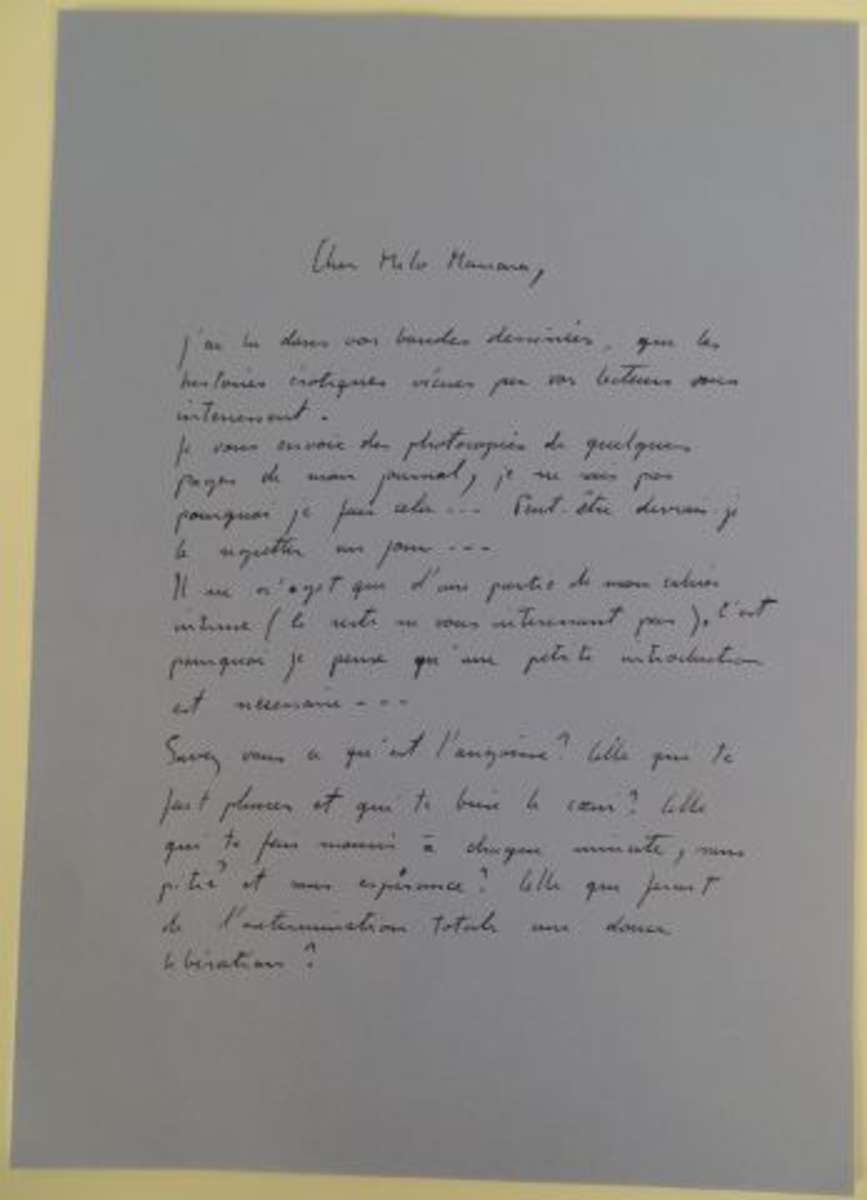 Cher Milo Manara,
j'ai lu dans vos bandes dessinées, que les
histoires érotiques vécues par vos lecteurs vous
interessent.
Je vous envoie des photocopies de quelques
pages de mon journal, je ne sais pas
pourquoi je fais cela --- Peut-être devrai-je
le regretter un jour ---
Il ne s'agit que d'une partie de mon cahier
intime (le reste ne vous interessant pas), c'est
pourquoi je pense qu'une petite introduction
est nécessaire ---
Savez vous ce qu'est l'angoisse? Celle qui te
fait pleurer et qui te brise le cœur? Celle
qui te fais mourir à chaque minute, sans
pitié et sans espérance? Celle qui ferait
de l'extermination totale une douce
libération?